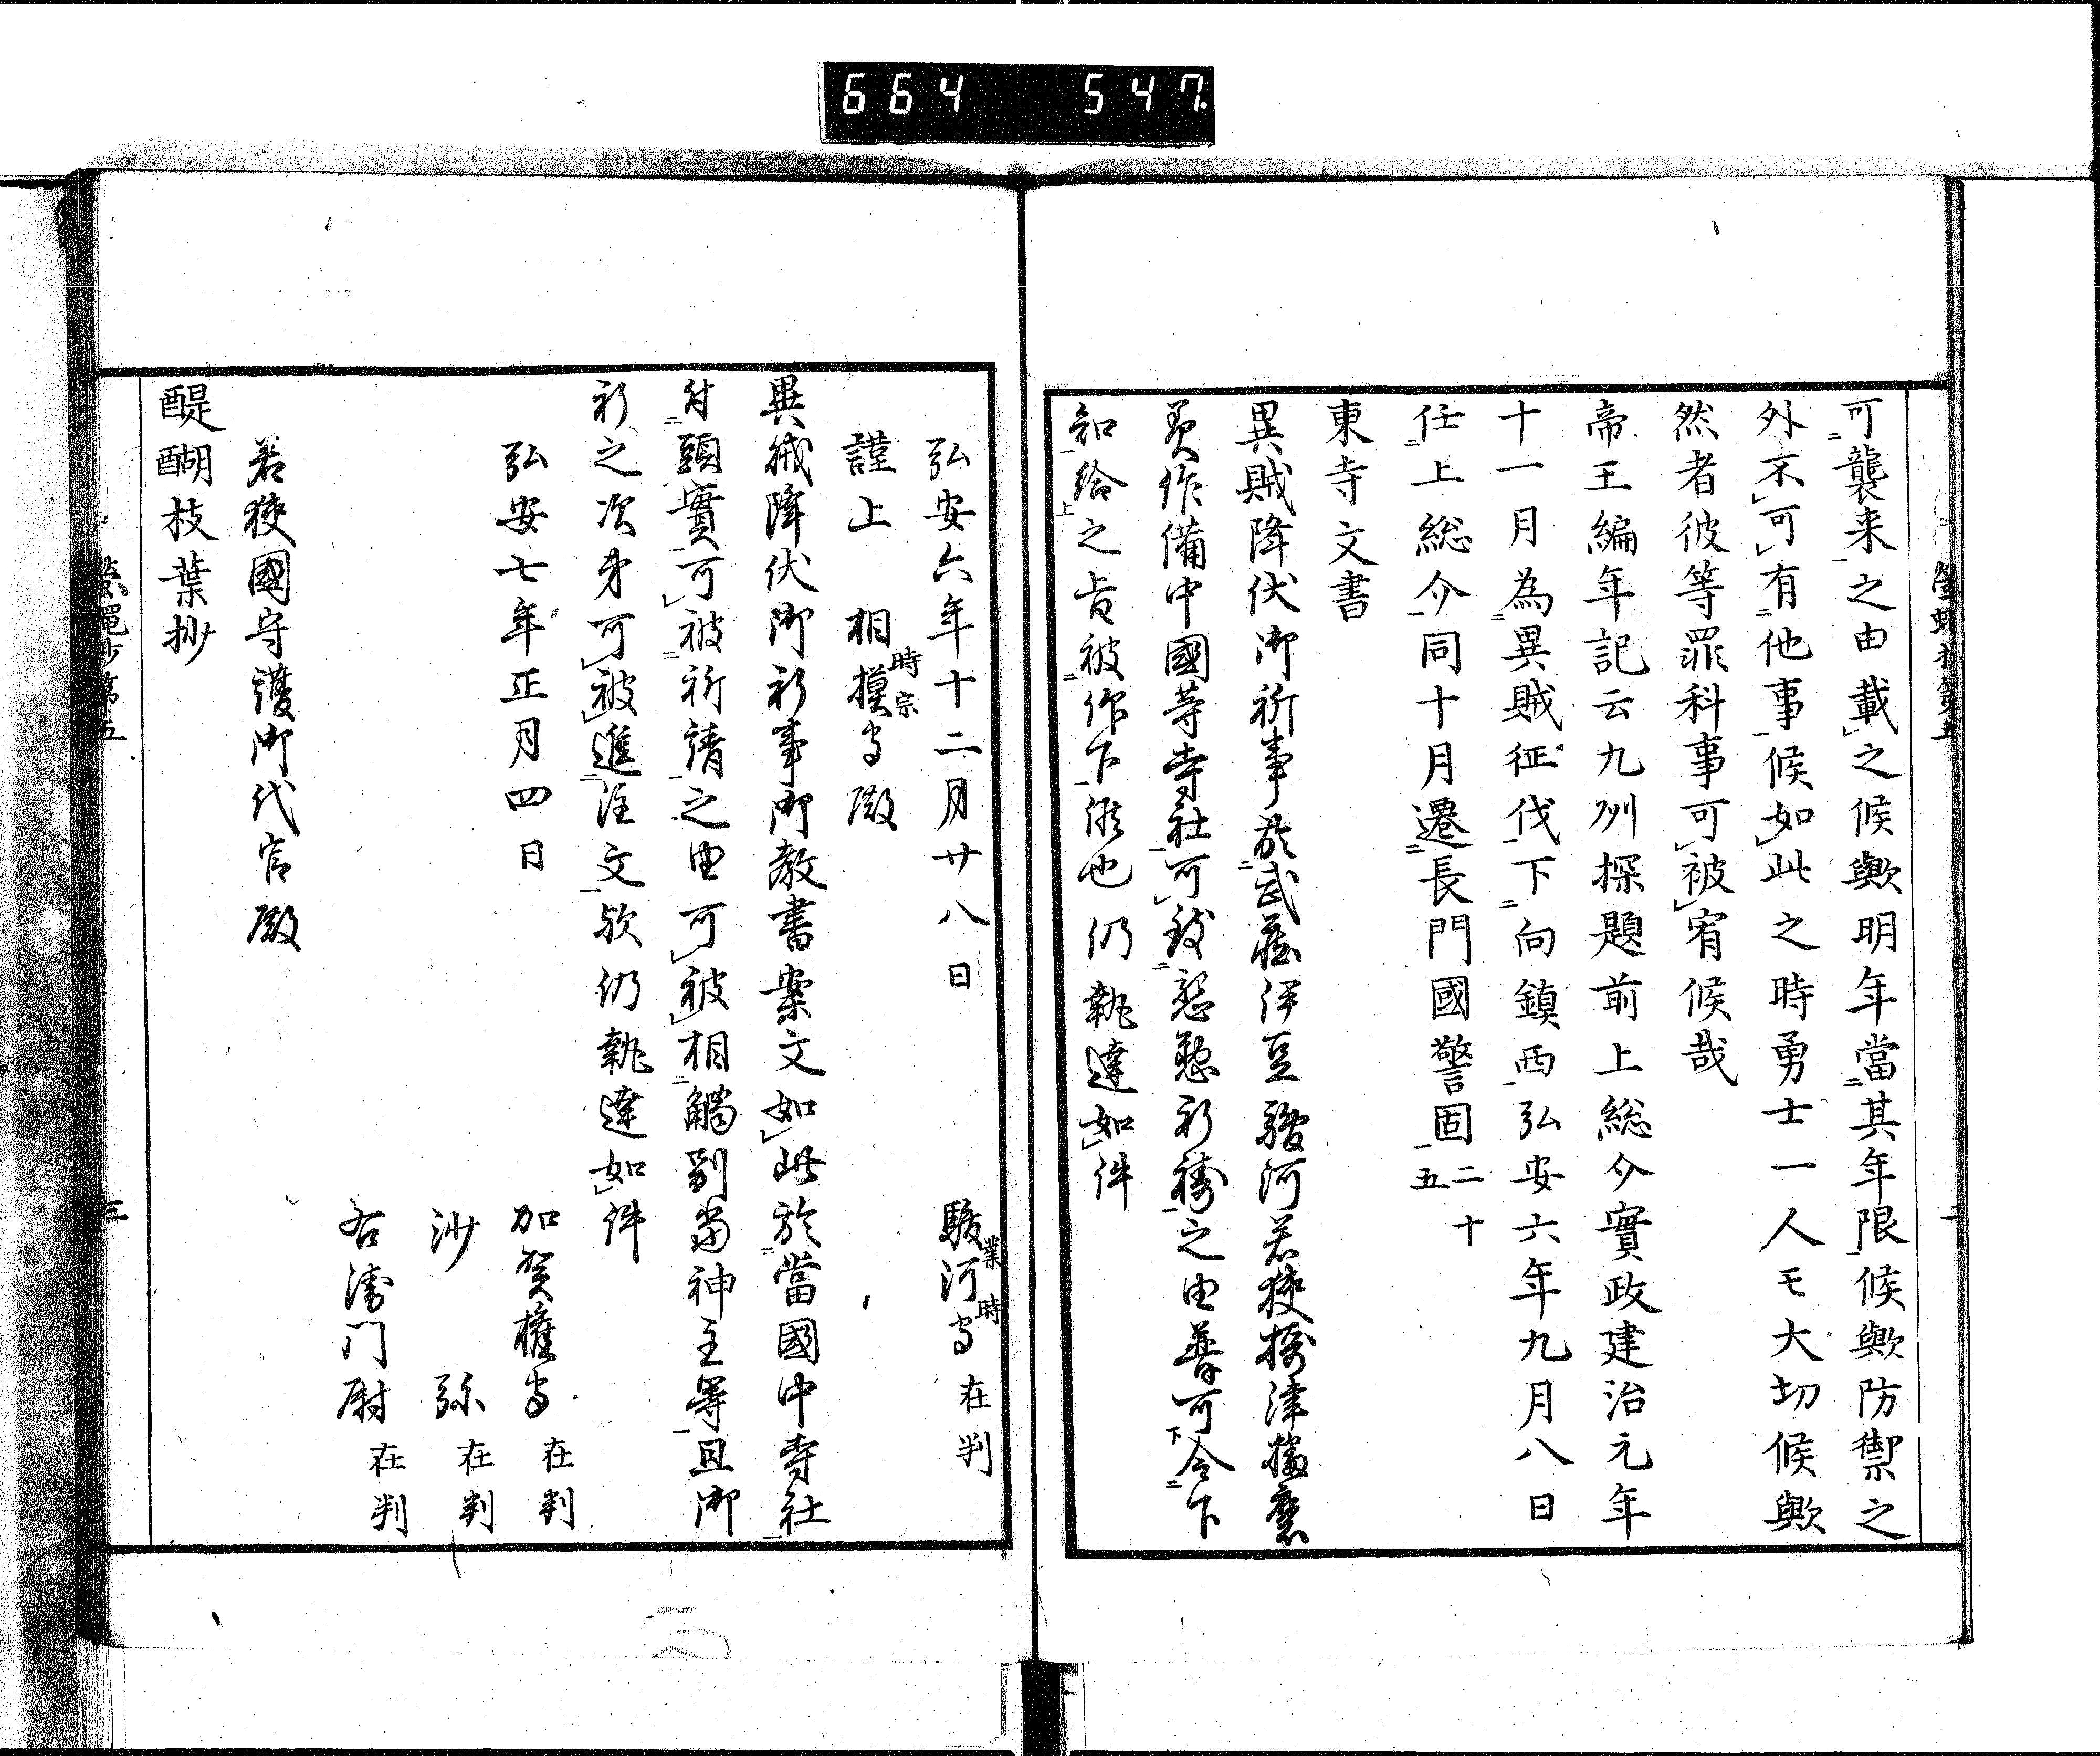 664 547
可襲来之由載之候歟明年當其年限候歟防禦之
外不可有他事候如此之時勇士一人モ大切候歟
然者彼等罪科事可被宥候哉
帝王編年記云九州探題前上総介實政建治元年
十一月為異賊征伐下向鎮西弘安六年九月八日
任上総介同十月遷長門國警固二十五
東寺文書
異賊降伏御祈事於武藏伊豆駿河若狭摂津播磨
美作備中國等寺社可致懇懃祈禱之由普可令下
知給之旨被作下候也仍執達如件
弘安六年十二月廿八日 駿河守業時在判
謹上 相摸守殿時宗
異賊降伏御祈事御教書案文如此於當國中寺社
付頭實可被祈請之由可被相觸別當神主等且御
祈之次第可被進注文欤仍執達如件
弘安七年正月四日 加賀権守在判
沙弥在判
右衛門尉在判
若狭國守護御代官殿
醍醐枝葉抄
螢蠅抄第五 三